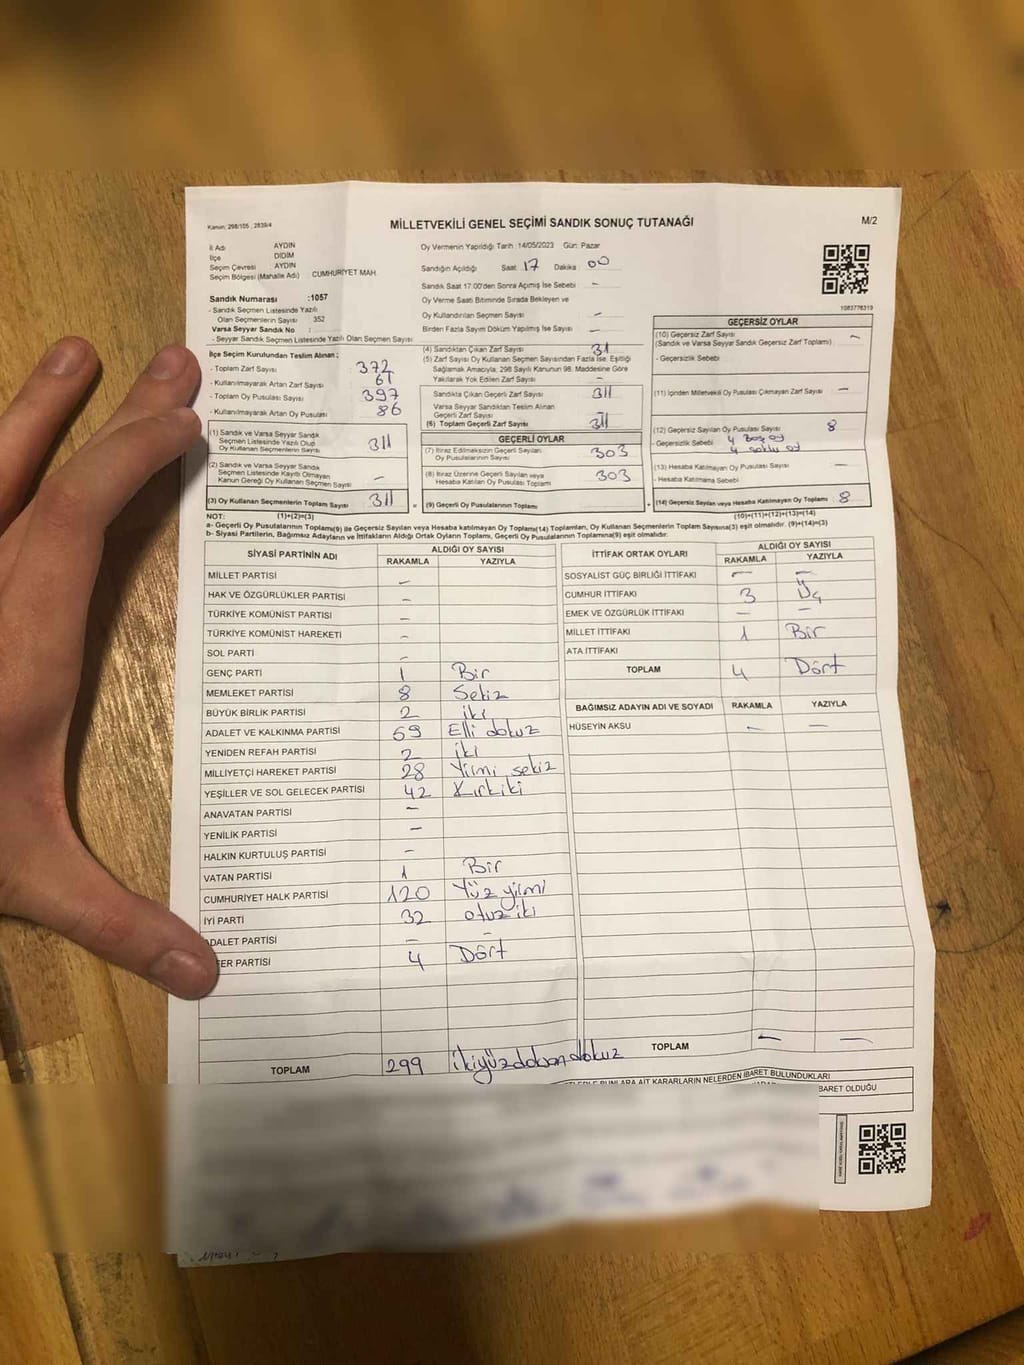 Kanun: 298/105 , 2839/4
MİLLETVEKİLİ GENEL SEÇİMİ SANDIK SONUÇ TUTANAĞI
M/2
İl Adı AYDIN
İlçe DİDİM
Seçim Çevresi AYDIN
Seçim Bölgesi (Mahalle Adı) CUMHURİYET MAH.
Sandık Numarası :1057
- Sandık Seçmen Listesinde Yazılı
Olan Seçmenlerin Sayısı 352
Varsa Seyyar Sandık No :
- Seyyar Sandık Seçmen Listesinde Yazılı Olan Seçmen Sayısı
Oy Vermenin Yapıldığı Tarih :14/05/2023 Gün: Pazar
Sandığın Açıldığı Saat 17 Dakika 00
Sandık Saat 17.00'den Sonra Açılmış İse Sebebi –
Oy Verme Saati Bitiminde Sırada Bekleyen ve
Oy Kullandırılan Seçmen Sayısı –
Birden Fazla Sayım Döküm Yapılmış İse Sayısı –
1083776319
İlçe Seçim Kurulundan Teslim Alınan ;
- Toplam Zarf Sayısı 372
- Kullanılmayarak Artan Zarf Sayısı 61
- Toplam Oy Pusulası Sayısı 397
- Kullanılmayarak Artan Oy Pusulası 86
(1) Sandık ve Varsa Seyyar Sandık
Seçmen Listesinde Yazılı Olup
Oy Kullanan Seçmenlerin Sayısı 311
(2) Sandık ve Varsa Seyyar Sandık
Seçmen Listesinde Kayıtlı Olmayan
Kanun Gereği Oy Kullanan Seçmen Sayısı –
(3) Oy Kullanan Seçmenlerin Toplam Sayısı 311
(4) Sandıktan Çıkan Zarf Sayısı 31
(5) Zarf Sayısı Oy Kullanan Seçmen Sayısından Fazla İse, Eşitliği
Sağlamak Amacıyla, 298 Sayılı Kanunun 98. Maddesine Göre
Yakılarak Yok Edilen Zarf Sayısı –
Sandıkta Çıkan Geçerli Zarf Sayısı 311
Varsa Seyyar Sandıktan Teslim Alınan
Geçerli Zarf Sayısı –
(6) Toplam Geçerli Zarf Sayısı 311
GEÇERLİ OYLAR
(7) İtiraz Edilmeksizin Geçerli Sayılan
Oy Pusulalarının Sayısı 303
(8) İtiraz Üzerine Geçerli Sayılan veya
Hesaba Katılan Oy Pusulası Toplamı 303
= (9) Geçerli Oy Pusulalarının Toplamı
GEÇERSİZ OYLAR
(10) Geçersiz Zarf Sayısı –
(Sandık ve Varsa Seyyar Sandık Geçersiz Zarf Toplamı)
- Geçersizlik Sebebi
(11) İçinden Milletvekili Oy Pusulası Çıkmayan Zarf Sayısı –
(12) Geçersiz Sayılan Oy Pusulası Sayısı 8
- Geçersizlik Sebebi 4 Boş oy
4
(13) Hesaba Katılmayan Oy Pusulası Sayısı –
- Hesaba Katılmama Sebebi
+ (14) Geçersiz Sayılan veya Hesaba Katılmayan Oy Toplamı 8
NOT: (1)+(2)=(3)
(10)+(11)+(12)+(13)=(14)
a- Geçerli Oy Pusulalarının Toplamı(9) ile Geçersiz Sayılan veya Hesaba katılmayan Oy Toplamı(14) Toplamları, Oy Kullanan Seçmenlerin Toplam Sayısına(3) eşit olmalıdır. (9)+(14)=(3)
b- Siyasi Partilerin, Bağımsız Adayların ve İttifakların Aldığı Ortak Oyların Toplamı, Geçerli Oy Pusulalarının Toplamına(9) eşit olmalıdır.
SİYASİ PARTİNİN ADI ALDIĞI OY SAYISI
RAKAMLA YAZIYLA
MİLLET PARTİSİ –
HAK VE ÖZGÜRLÜKLER PARTİSİ –
TÜRKİYE KOMÜNİST PARTİSİ –
TÜRKİYE KOMÜNİST HAREKETİ –
SOL PARTİ –
GENÇ PARTİ 1 Bir
MEMLEKET PARTİSİ 8 Sekiz
BÜYÜK BİRLİK PARTİSİ 2 iki
ADALET VE KALKINMA PARTİSİ 59 Elli dokuz
YENİDEN REFAH PARTİSİ 2 iki
MİLLİYETÇİ HAREKET PARTİSİ 28 Yirmi sekiz
YEŞİLLER VE SOL GELECEK PARTİSİ 42 Kırkiki
ANAVATAN PARTİSİ –
YENİLİK PARTİSİ –
HALKIN KURTULUŞ PARTİSİ –
VATAN PARTİSİ 1 Bir
CUMHURİYET HALK PARTİSİ 120 Yüz yirmi
İYİ PARTİ 32 otuz iki
ADALET PARTİSİ – –
FER PARTİSİ 4 Dört
TOPLAM 299 ikiyüzdoksandokuz
İTTİFAK ORTAK OYLARI ALDIĞI OY SAYISI
RAKAMLA YAZIYLA
SOSYALİST GÜÇ BİRLİĞİ İTTİFAKI – –
CUMHUR İTTİFAKI 3 Üç
EMEK VE ÖZGÜRLÜK İTTİFAKI – –
MİLLET İTTİFAKI 1 Bir
ATA İTTİFAKI
TOPLAM 4 Dört
BAĞIMSIZ ADAYIN ADI VE SOYADI RAKAMLA YAZIYLA
HÜSEYİN AKSU – –
TOPLAM – –
BUNLARA AİT KARARLARIN NELERDEN İBARET BULUNDUKLARI
BARET OLDUĞU